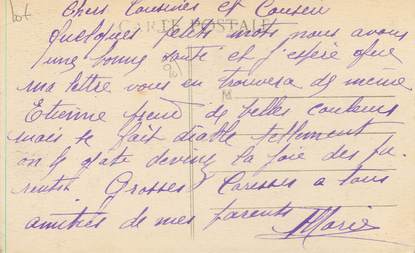 Lot
Chers Cousines et Cousin
CARTE POSTALE
Quelques petits mots nous avons
une bonne santé et j'espère que
ma lettre vous en trouvera de même
Etienne prend de belles couleurs
mais se fait diable tellement
on le gate devient la joie des pa
rents. Grosses Caresses a tous
amitiés de mes parents Marie